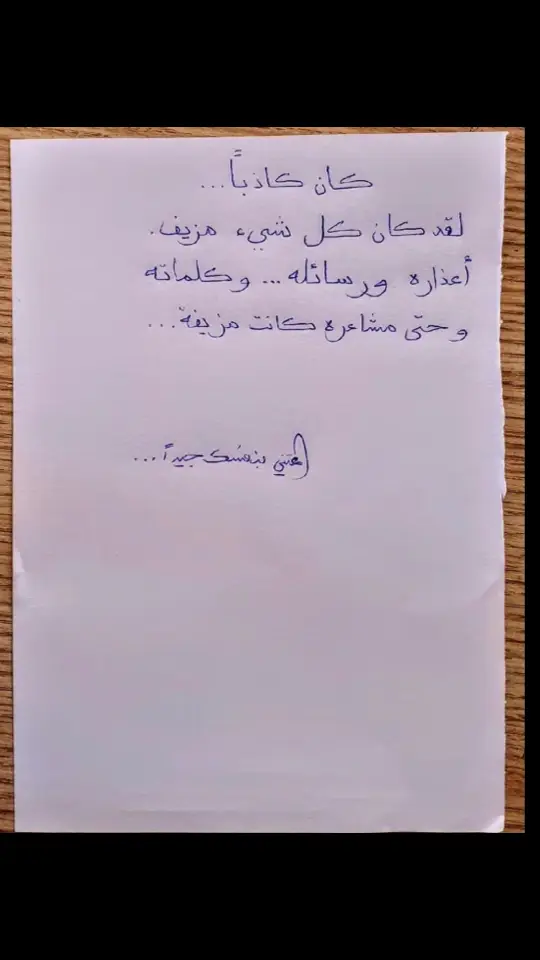 كان كاذباً...
لقد كان كل شيء مزيف.
أعذاره ورسائله... وكلماته
وحتى مشاعره كانت مزيفة...
اعتني بنفسك جيداً...